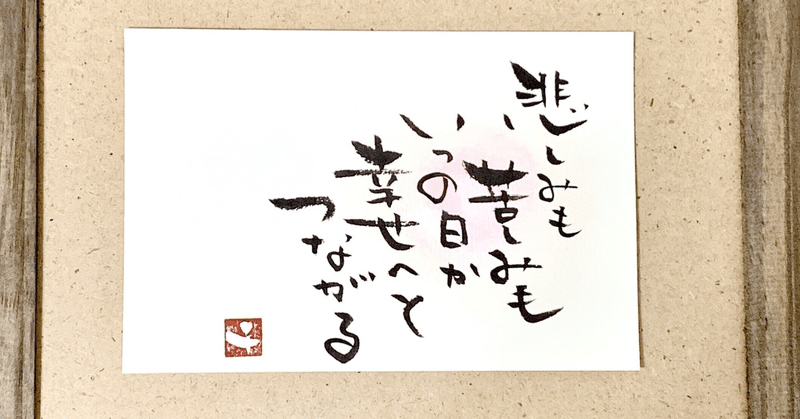 悲しみも
苦しみも
いつの日か
幸せへと
つながる